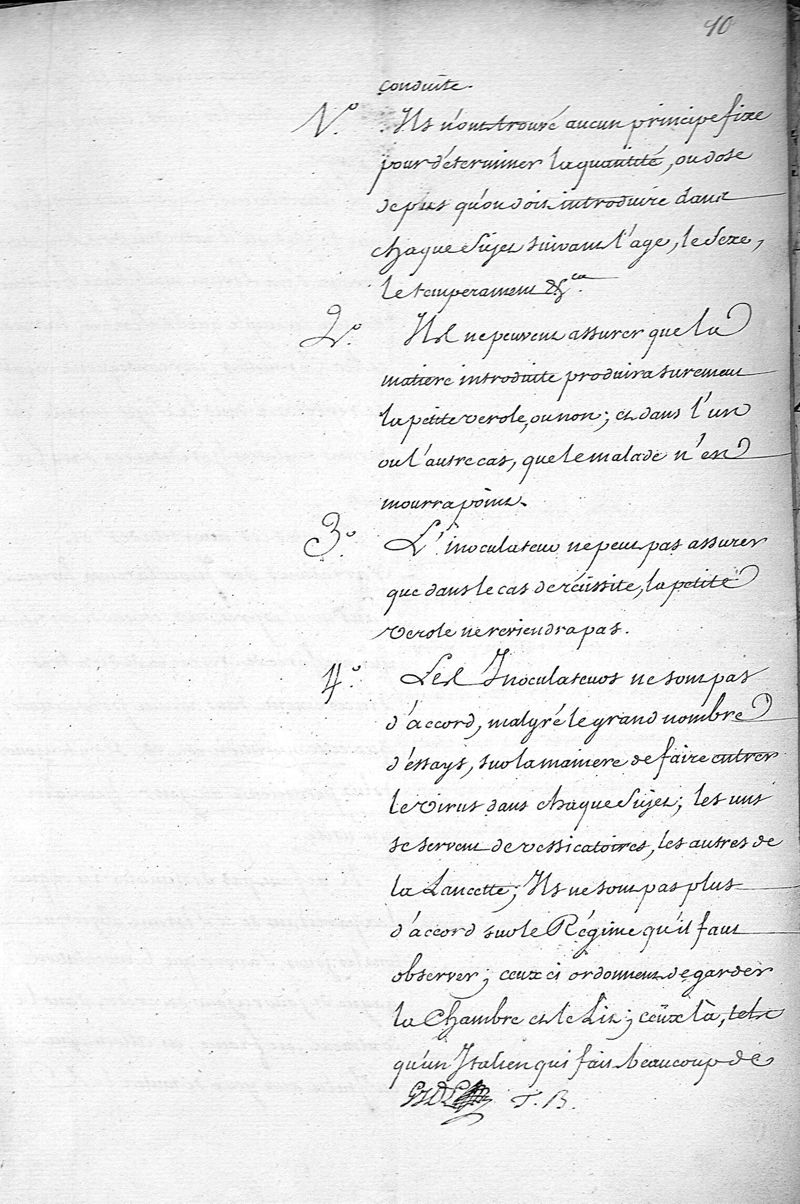 40
conduite.
1.° Ils n'ont trouvé aucun principe fixe
pour déterminer la quantité, ou dose
de pus qu'on doit introduire dans
chaque Sujet suivant l'age, le Sexe,
le temperament &.ca
2.° Ils ne peuvent assurer que la
matiere introduite produira surement
la petite verole, ou non; et dans l'un
ou l'autre cas, que le malade n'en
mourra point.
3.° L'inoculateur ne peut pas assurer
que dans le cas de réüssite, la petite
verole ne reviendra pas.
4.° Les Inoculateurs ne sont pas
d'accord, malgré le grand nombre
d'éssays, sur la maniere de faire entrer
le virus dans chaque Sujet; les uns
se servent de vessicatoires, les autres de
la Lancette; Ils ne sont pas plus
d'accord sur le Régime qu'il faut
observer; ceux ci ordonnent de garder
la Chambre et le Lit; ceüx là, tels
qu'un Italien qui fait beaucoup de
T. B.